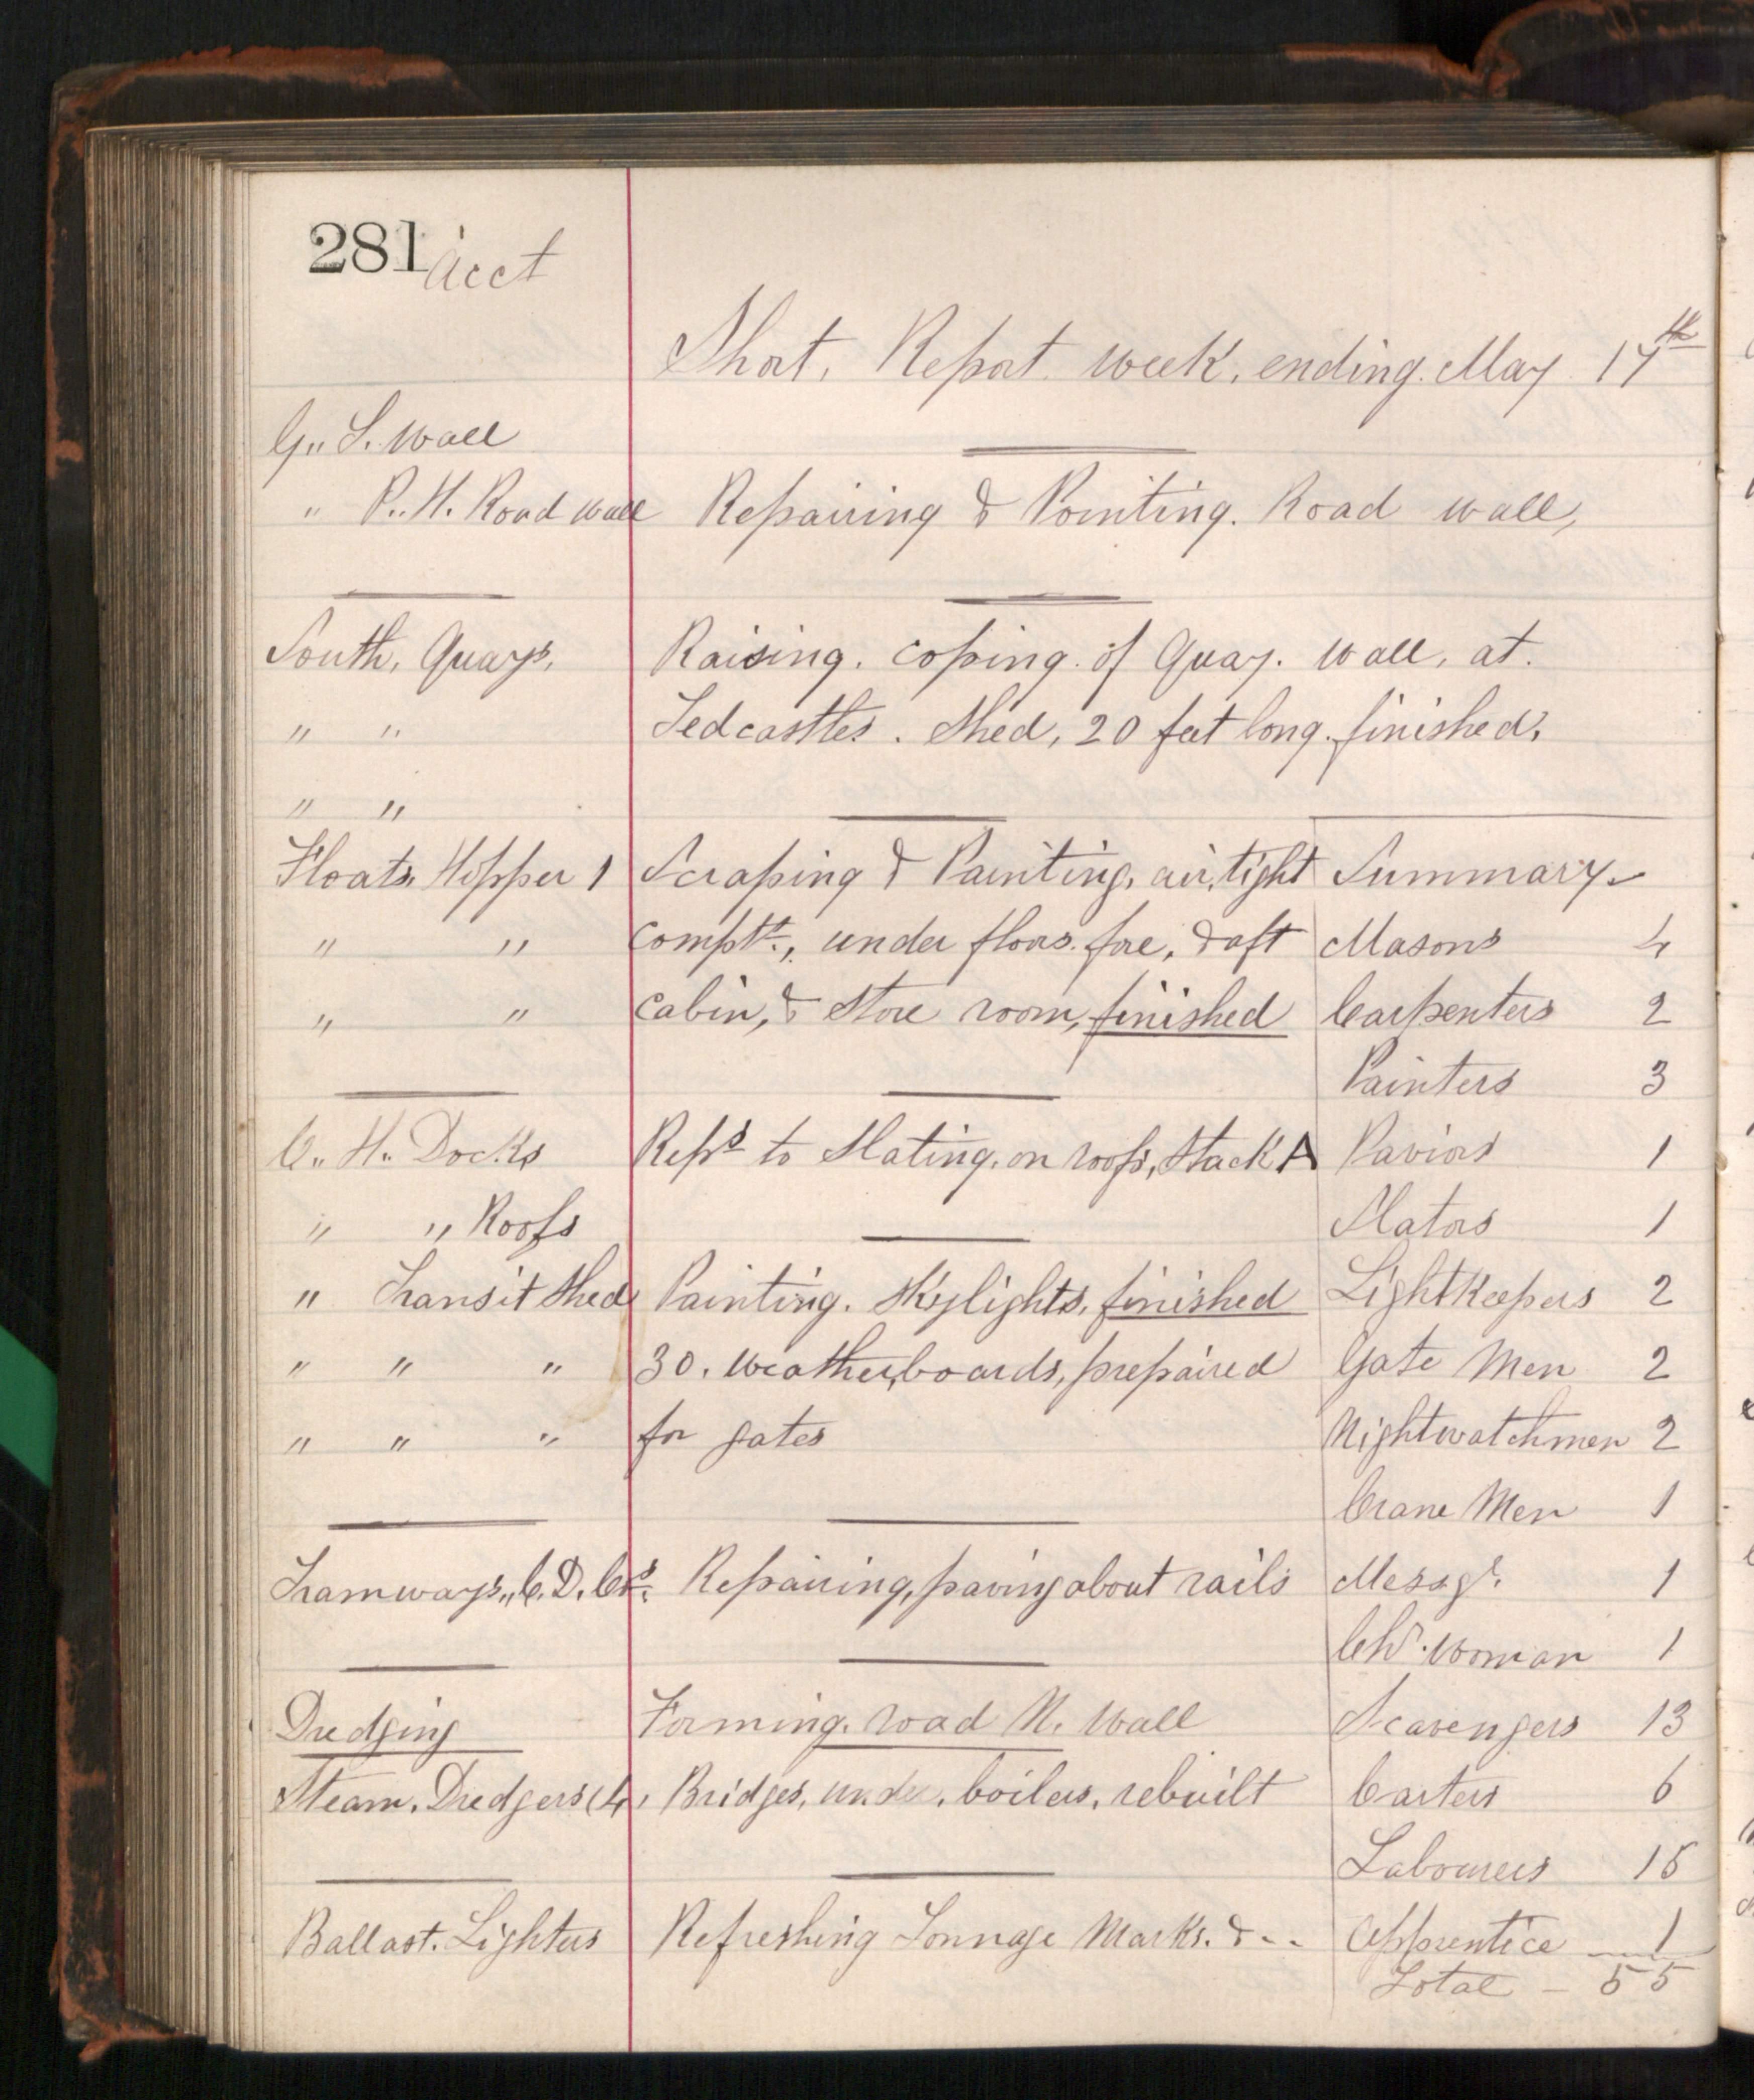 281 Acct
Short. Report week. ending. May 17th
G. S. Wall
" P. H. Road wall Repairing & Pointing. Road wall,
South, Quays, Raising. coping. of Quay. wall, at.
" " Tedcasttes. Shed, 20 feet long. finished,
" "
Floats, Hopper 1 Scraping & Painting, air,tight Summary
" " Compts., under floors. fore, & aft Masons 4
" " cabin, & Store room, finished Carpenters 2
Painters 3
C. H. Docks Reps to Slating, on roofs, Stack A Paviors 1
" " Roofs Slators 1
" Transit Shed Painting. Skylights, finished Lightkeepers 2
" " " 30. Weather,boards, prepaired Gate Men 2
" " " for gates Nightwatchmen 2
Crane Men 1
Tramways,, C. D. Crs. Repairing, paving about rails Messgr. 1
Chr. Woman 1
Dredging Forming. road N. Wall Scavengers 13
Steam. Dredgers (4, Bridges, under. boilers, rebuilt Carters 6
Labourers 15
Ballast. Lighters Refreshing Tonnage Marks. & -- Apprentice 1
Total - 55